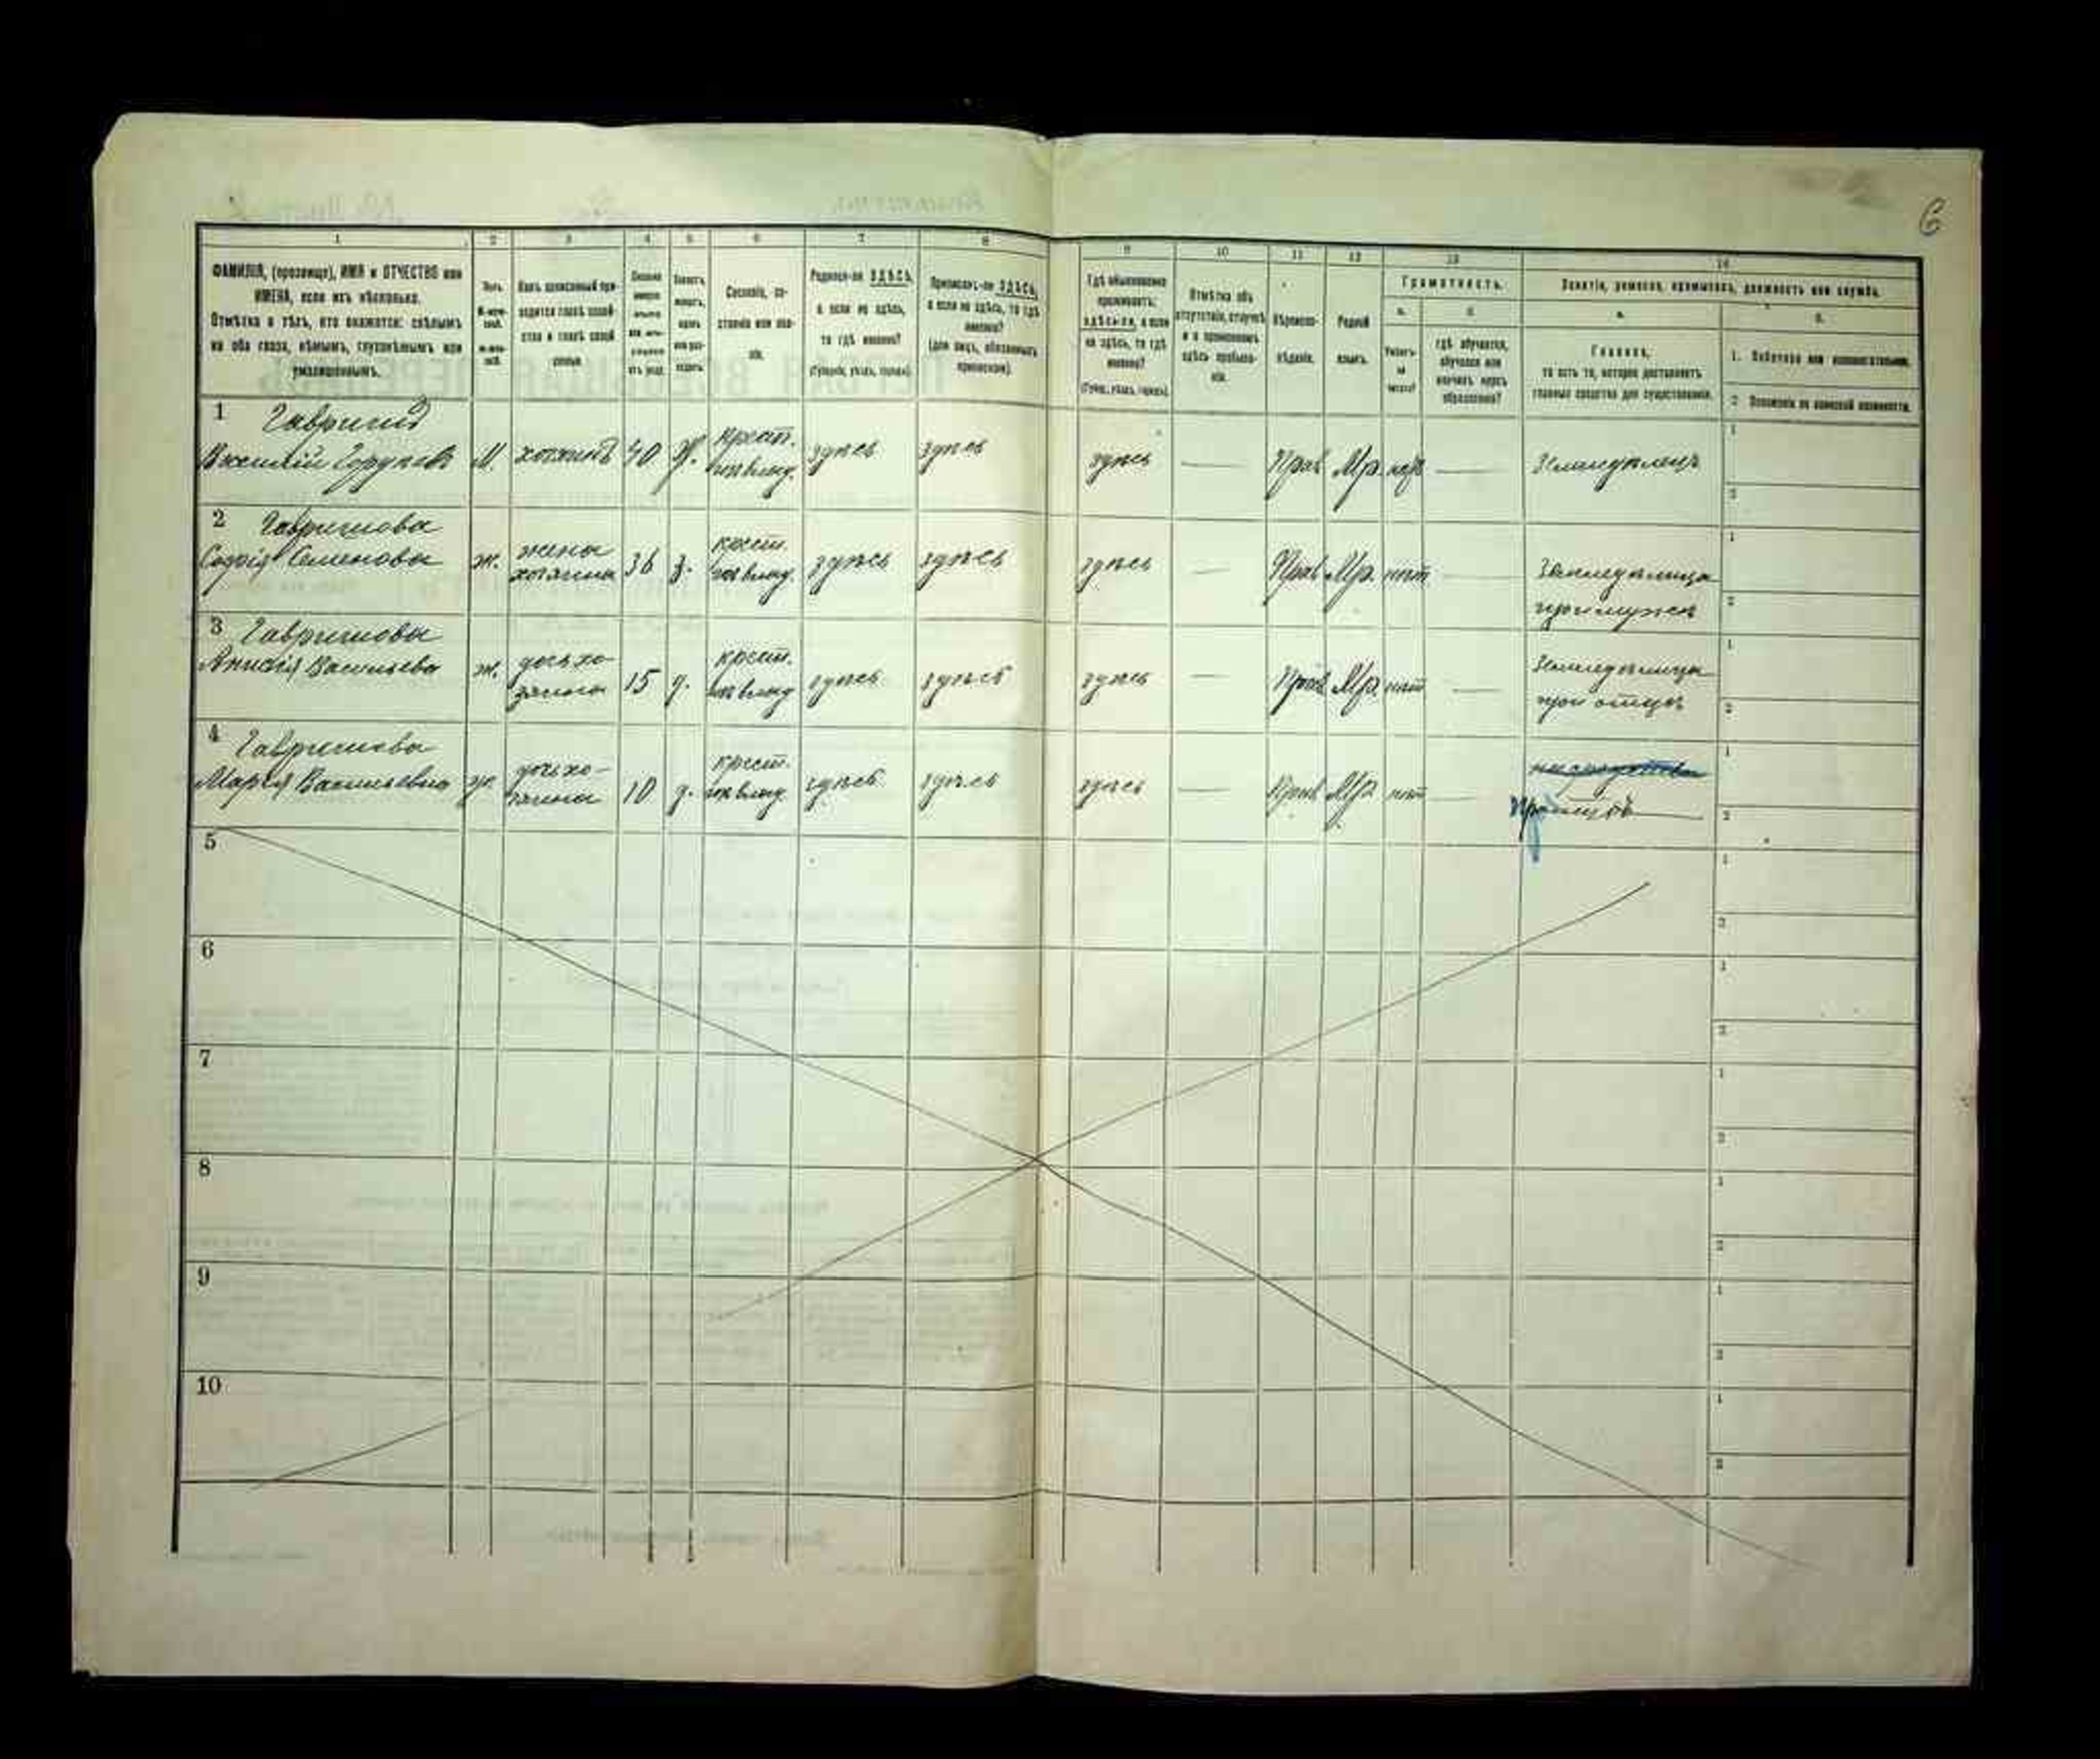 6
1 2 3 4 5 6 7 8 9 10 11 12 13 14
ФАМИЛІЯ, (прозвище), ИМЯ и ОТЧЕСТВО или
ИМЕНА, если ихъ нѣсколько.
Отмѣтка о тѣхъ, кто окажется: слѣпымъ
на оба глаза, нѣмымъ, глухонѣмымъ или
умалишеннымъ.
Полъ.
Какъ записанный при-
ходится главѣ хозяй-
ства и главѣ своей
семьи
Сословіе, со-
стояніе или зва-
ніе.
Родился-ли ЗДѢСЬ,
а если не здѣсь,
то гдѣ именно?
(Губернія, уѣздъ, городъ).
Приписанъ-ли ЗДѢСЬ,
а если не здѣсь, то гдѣ
именно?
(для лицъ, обязанныхъ
припискою).
Гдѣ обыкновенно
проживаетъ:
здѣсь-ли, а если
не здѣсь, то гдѣ
именно?
(Губер., уѣздъ, городъ).
Отмѣтка объ
отсутствіи, отлучкѣ
и о временномъ
здѣсь пребыва-
ніи.
Вѣроиспо-
вѣданіе.
Родной
языкъ.
Грамотность.
а.
Умѣетъ-
ли
читать?
б.
гдѣ обучается,
обучался или
кончилъ курсъ
образованія?
Занятіе, ремесло, промыселъ, должность или служба.
а.
Главное,
то есть то, которое доставляетъ
главныя средства для существованія.
б.
1. Побочное или вспомогательное.
2. Положеніе по воинской повинности.
1
Василій М. 40 Ж. крест. здѣсь здѣсь здѣсь — Прав Мр. — Земледѣлецъ 1 2
2 Гавришова
Софія Семенова ж. жена хозяина 36 з. крест. здѣсь здѣсь здѣсь — Прав Мр. нѣт — Земледѣлица при мужѣ 1 2
3 Гавришова
Анисія Васильева ж. дочь хо- зяина 15 д. крест. здѣсь здѣсь здѣсь — Прав Мр. нѣт — Земледѣлица при отцѣ 1 2
4 Гавришова
Марія Васильевна ж. дочь хо- зяина 10 д. крест. здѣсь здѣсь здѣсь — Прав Мр. нѣт — При отцѣ 1 2
5 1 2
6 1 2
7 1 2
8 1 2
9 1 2
10 1 2